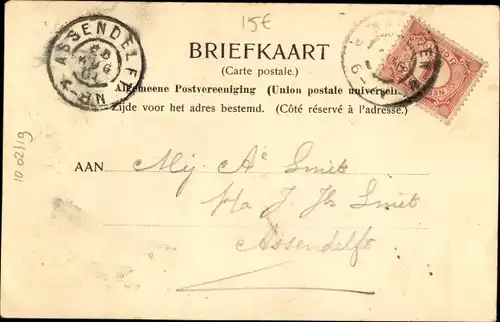 15€
ASSENDELFT
BRIEFKAART
(Carte postale.)
Algemeene Postvereeniging (Union postale universelle)
Zijde voor het adres bestemd. (Côté réservé à l'adresse.)
AAN Mej. A. Smit
p/a J. Jb Smit
Assendelft
10 02/19